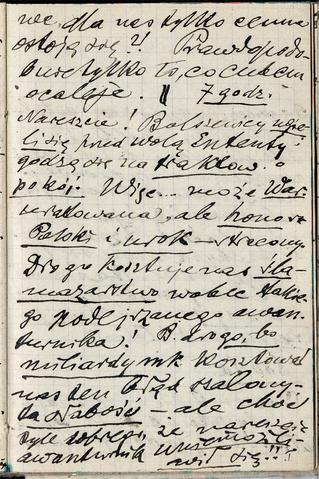 nie, dla nas tylko cenne
ostoją się?! Prawdopodo-
bnie tylko to, co cudem
ocaleje. || 7 godz.
Nareszcie! Bolszewicy ugię-
li się przed wolą Ententy i
godzą się na traktow. o
pokój. Więc... może War.
uratowana, ale honor
Polski i urok — stracony.
Drogo kosztuje nas śla-
mazarstwo wobec takie-
go podejrzanego awan-
turnika! B. drogo, bo
miliardy mk kosztował
nas ten błąd szalony-
ta słabość — ale choć
tyle dobrego, że nareszcie
awanturnik uniemożli-
wił się!!!